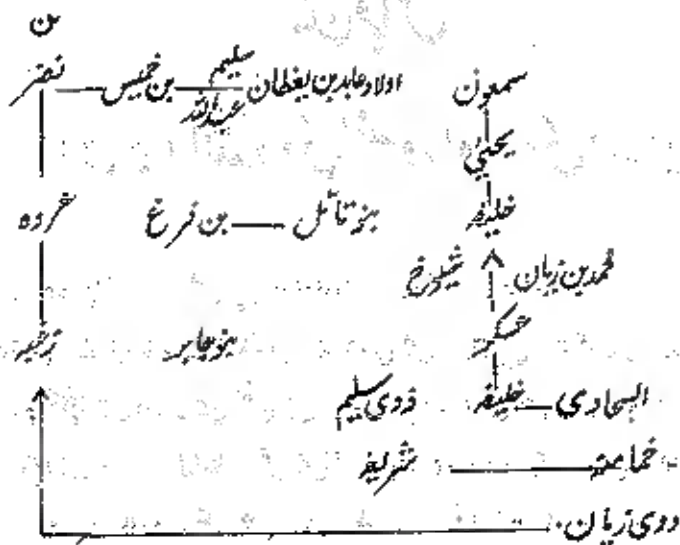 بن
سمعون اولاد عابد بن یغطان سلیم عبداللہ بن خمیس نضر
یحییٰ
خلیفہ بنو تائل بن فرغ غردہ
محمد بن زبان شیوخ
عسکر بنو جابر زغبہ
السحاری خلیفہ ذوی سلیم
خماعنہ شریفہ
ذوی زیان